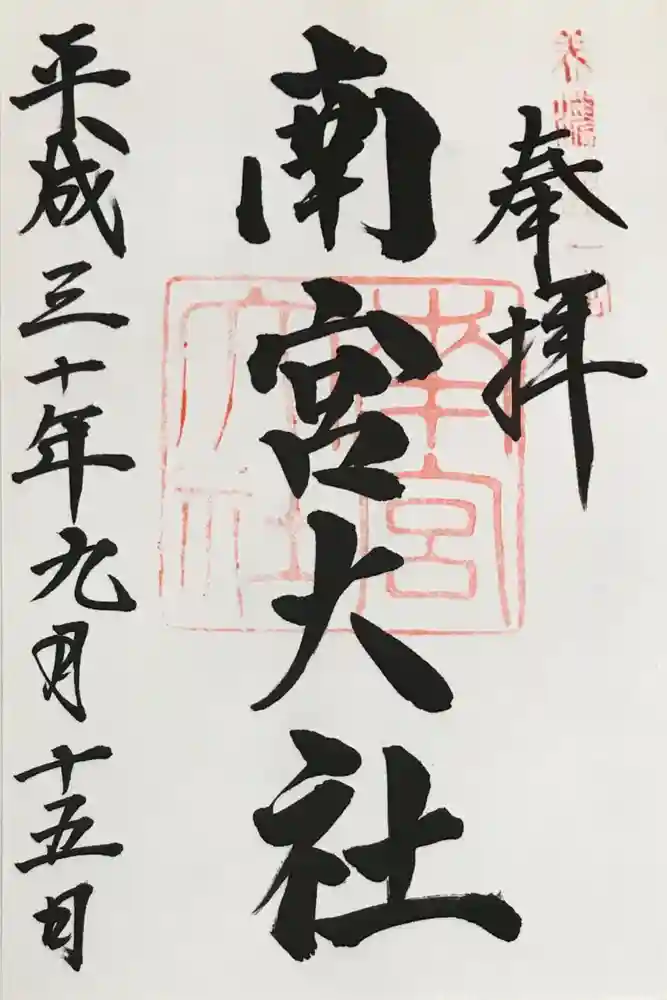 奉拝
南宮大社
南宮大社
平成三十年九月十五日